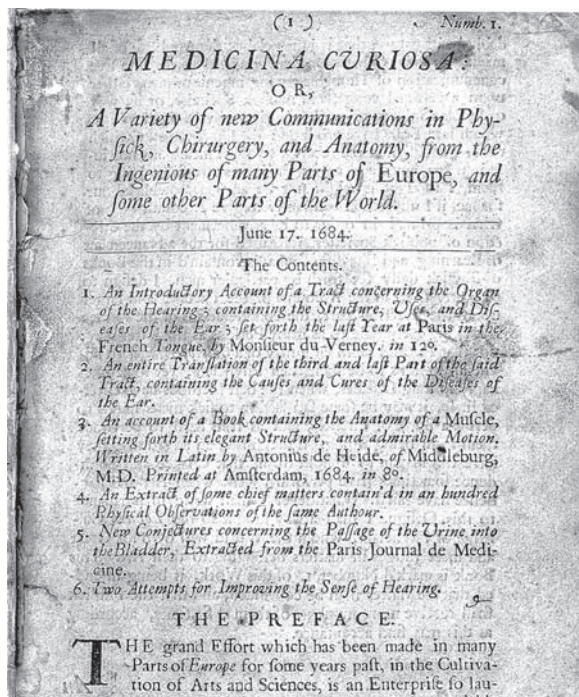 ( 1 ) Numb. 1.
MEDICINA CURIOSA:
OR,
A Variety of new Communications in Phy-
ſick, Chirurgery, and Anatomy, from the
Ingenious of many Parts of Europe, and
ſome other Parts of the World.
June 17. 1684.
The Contents.
1. An Introductory Account of a Tract concerning the Organ
of the Hearing; containing the Structure, Uſes, and Diſ-
eaſes of the Ear; ſet forth the laſt Year at Paris in the
French Tongue, by Monſieur du-Verney. in 12º.
2. An entire Tranſlation of the third and laſt Part of the ſaid
Tract, containing the Cauſes and Cures of the Diſeaſes of
the Ear.
3. An account of a Book containing the Anatomy of a Muſcle,
ſetting forth its elegant Structure, and admirable Motion.
Written in Latin by Antonius de Heide, of Middleburg,
M.D. Printed at Amſterdam, 1684. in 8º.
4. An Extract of ſome chief matters contain'd in an hundred
Phyſical Obſervations of the ſame Authour.
5. New Conjectures concerning the Paſſage of the Urine into
the Bladder, Extracted from the Paris Journal de Medi-
cine.
6. Two Attempts for Improving the Senſe of Hearing.
THE PREFACE.
THE grand Effort which has been made in many
Parts of Europe for ſome years paſt, in the Cultiva-
tion of Arts and Sciences, is an Enterpriſe ſo lau-